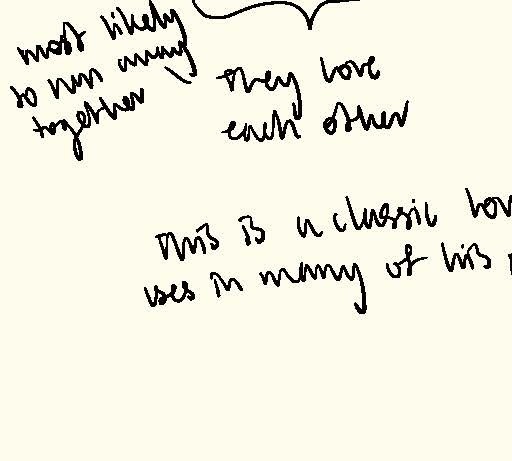 most likely
to run away
together
They love
each other
This is a classic
uses in many of his